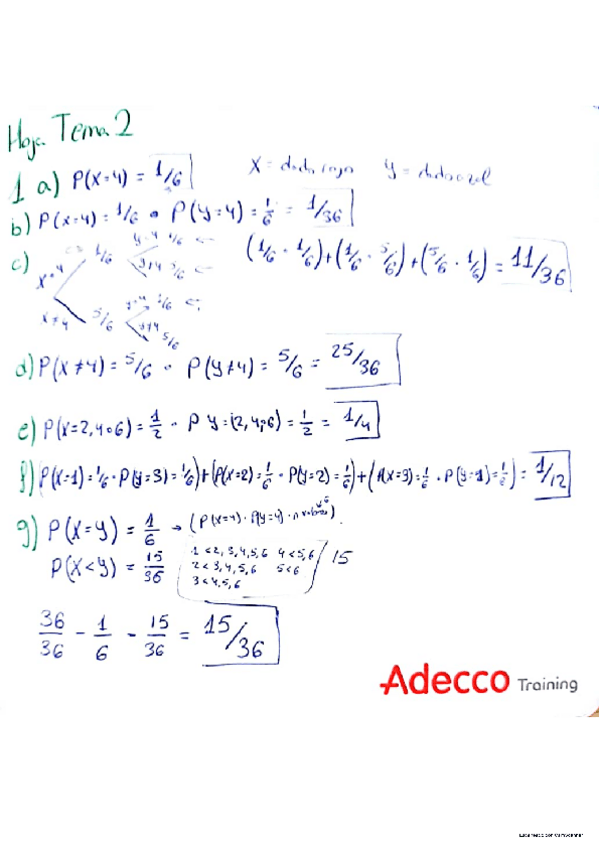 Hoja Tema 2
1 a) P(X=4) = 1/6 X = dado rojo Y = dado azul
b) P(x=4) = 1/6 · P(y=4) = 1/6 = 1/36
c) x=4 1/6 y=4 1/6 y≠4 5/6 (1/6 · 1/6)+(1/6 · 5/6)+(5/6 · 1/6) = 11/36
x≠4 5/6 y=4 1/6 y≠4 5/6
d) P(X≠4) = 5/6 · P(y≠4) = 5/6 = 25/36
e) P(x=2,4 o 6) = 1/2 · P y=(2,4,6) = 1/2 = 1/4
f) (P(x=1)=1/6 · P(y=3)=1/6)+(P(x=2)=1/6 · P(y=2)=1/6)+(P(x=3)=1/6 · P(y=1)=1/6) = 1/12
g) P(X=Y) = 1/6 → (P(x=4) · P(y=4) · n
P(X<Y) = 15/36 1<2,3,4,5,6 4<5,6 / 15
2<3,4,5,6 5<6
3<4,5,6
36/36 - 1/6 - 15/36 = 15/36
Adecco Training